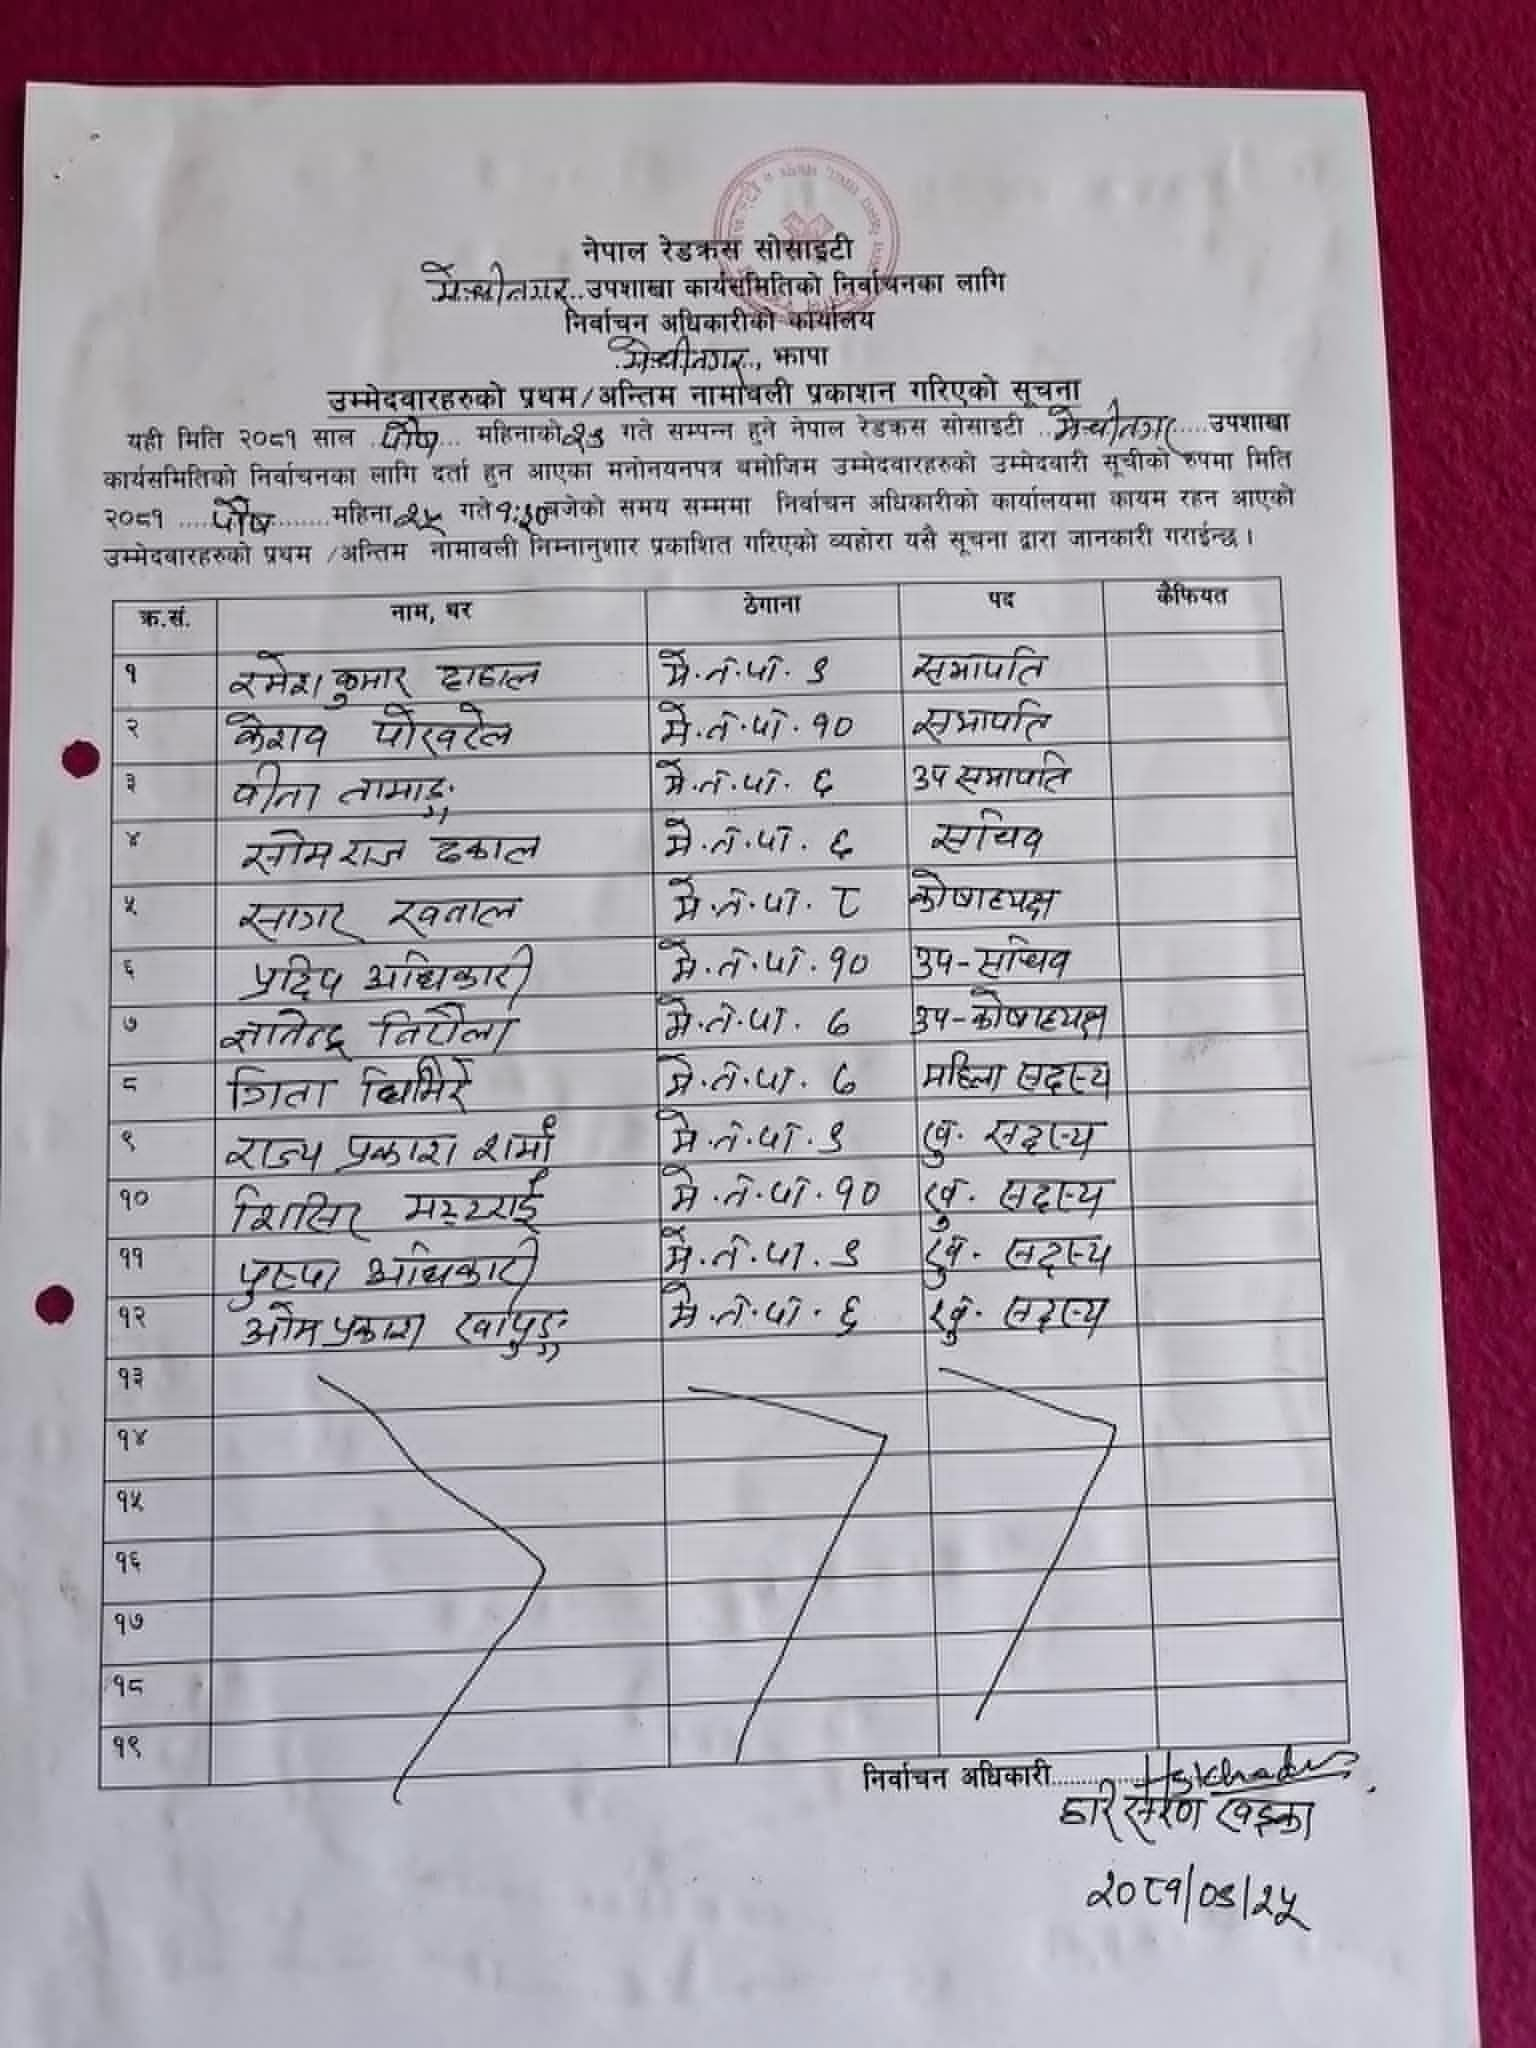 नेपाल रेडक्रस सोसाइटी
मेचीनगर..उपशाखा कार्यसमितिको निर्वाचनका लागि
निर्वाचन अधिकारीको कार्यालय
मेचीनगर.., झापा
उम्मेदवारहरुको प्रथम/अन्तिम नामावली प्रकाशन गरिएको सूचना
यही मिति २०८१ साल ..पौष... महिनाको २७ गते सम्पन्न हुने नेपाल रेडक्रस सोसाइटी ..मेचीनगर.....उपशाखा
कार्यसमितिको निर्वाचनका लागि दर्ता हुन आएका मनोनयनपत्र बमोजिम उम्मेदवारहरुको उम्मेदवारी सूचीको रुपमा मिति
२०८१ .....पौष........महिना २५ गते १:३० बजेको समय सम्ममा निर्वाचन अधिकारीको कार्यालयमा कायम रहन आएको
उम्मेदवारहरुको प्रथम /अन्तिम नामावली निम्नानुशार प्रकाशित गरिएको व्यहोरा यसै सूचना द्वारा जानकारी गराईन्छ ।
क्र.सं. नाम, थर ठेगाना पद कैफियत
१ रमेश कुमार दाहाल मे.न.पा. ९ सभापति
२ केशव पोखरेल मे.न.पा. १० सभापति
३ वीना तामाङ्ग मे.न.पा. ६ उप सभापति
४ सोमराज ढकाल मे.न.पा. ६ सचिव
५ सागर खनाल मे.न.पा. ८ कोषाध्यक्ष
६ प्रदिप अधिकारी मे.न.पा. १० उप-सचिव
७ ज्ञानेन्द्र निरौला मे.न.पा. ७ उप-कोषाध्यक्ष
८ गिता घिमिरे मे.न.पा. ७ महिला सदस्य
९ राज्य प्रकाश शर्मा मे.न.पा. ९ खु. सदस्य
१० शिसिर भट्टराई मे.न.पा. १० खु. सदस्य
११ पुष्पा अधिकारी मे.न.पा. ९ खु. सदस्य
१२ ओमप्रकाश खापुङ्ग मे.न.पा. ६ खु. सदस्य
१३
१४
१५
१६
१७
१८
१९
निर्वाचन अधिकारी..................
हरि सरण खड्का
२०८१/०९/२५